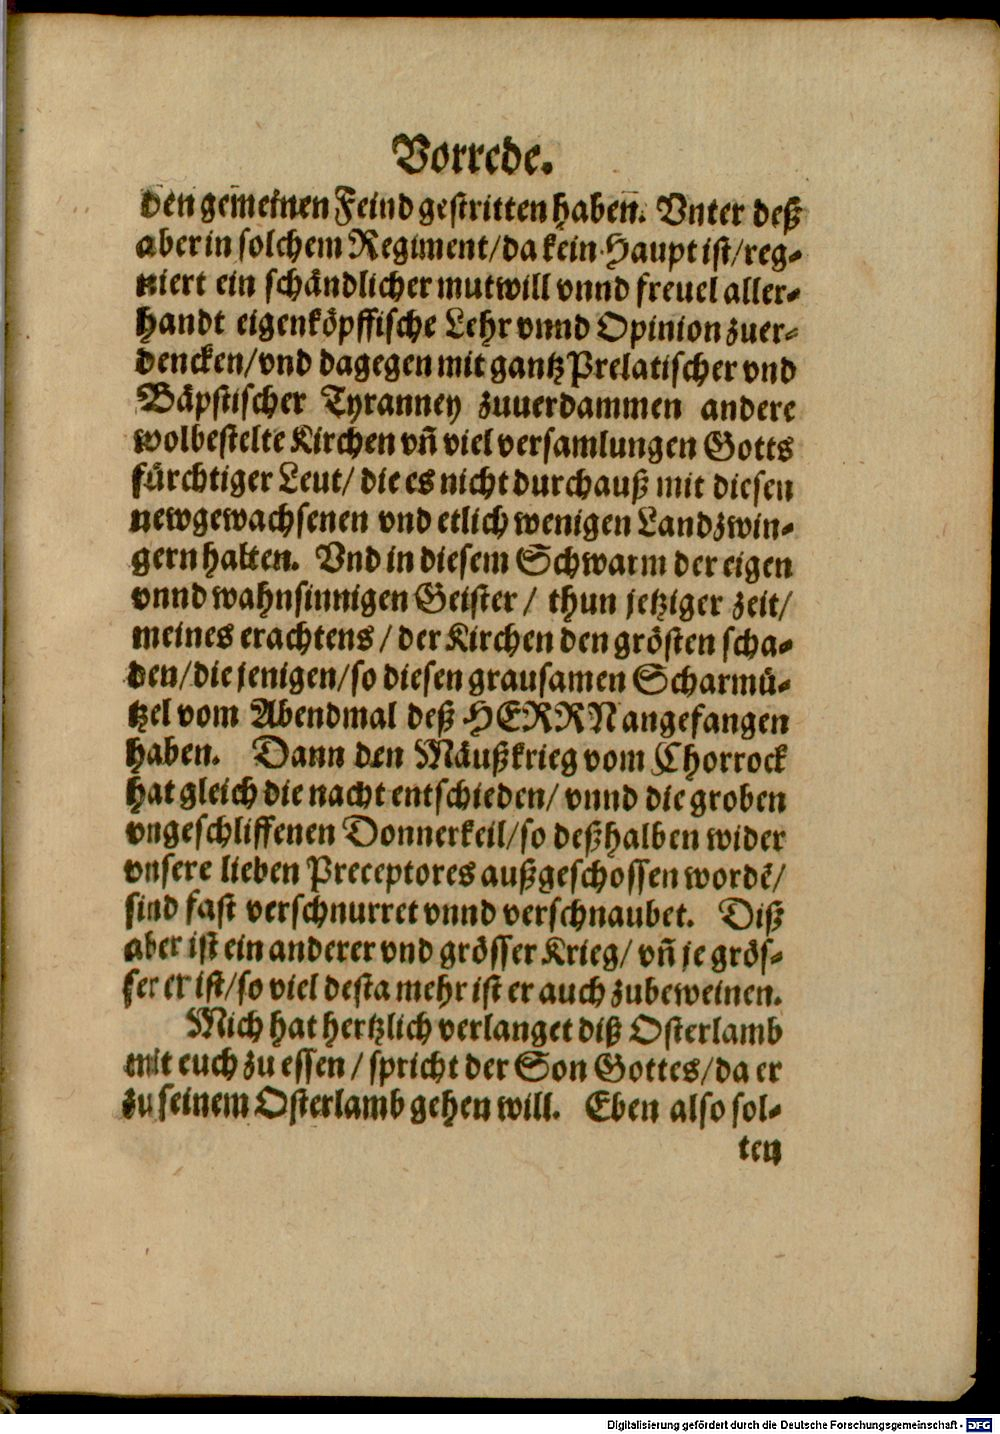 Vorrede.
den gemeinen Feind gestritten haben. Vnter deß
aber in solchem Regiment/ da kein Haupt ist/ reg-
niert ein schändlicher mutwill vnnd freuel aller-
handt eigenköpffische Lehr vnnd Opinion zuer-
dencken/ vnd dagegen mit gantz Prelatischer vnd
Bäpstischer Tyranney zuuerdammen andere
wolbestelte Kirchen vñ viel versamlungen Gotts
fürchtiger Leut/ die es nicht durchauß mit diesen
newgewachsenen vnd etlich wenigen Landzwin-
gern halten. Vnd in diesem Schwarm der eigen
vnnd wahnsinnigen Geister / thun jetziger zeit/
meines erachtens / der Kirchen den grösten scha-
den/ die jenigen/ so diesen grausamen Scharmü-
tzel vom Abendmal deß HERRN angefangen
haben. Dann den Mäußkrieg vom Chorrock
hat gleich die nacht entschieden/ vnnd die groben
vngeschliffenen Donnerkeil/ so deßhalben wider
vnsere lieben Preceptores außgeschossen wordē/
sind fast verschnurret vnnd verschnaubet. Diß
aber ist ein anderer vnd grösser Krieg/ vñ je grös-
ser er ist/ so viel desta mehr ist er auch zubeweinen.
Mich hat hertzlich verlanget diß Osterlamb
mit euch zu essen / spricht der Son Gottes/ da er
zu seinem Osterlamb gehen will. Eben also sol-
ten
Digitalisierung gefördert durch die Deutsche Forschungsgemeinschaft - DFG